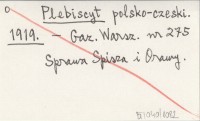 Plebiscyt polsko-czeski.
1919. – Gaz. Warsz. nr 275
Sprawa Spisza i Orawy.